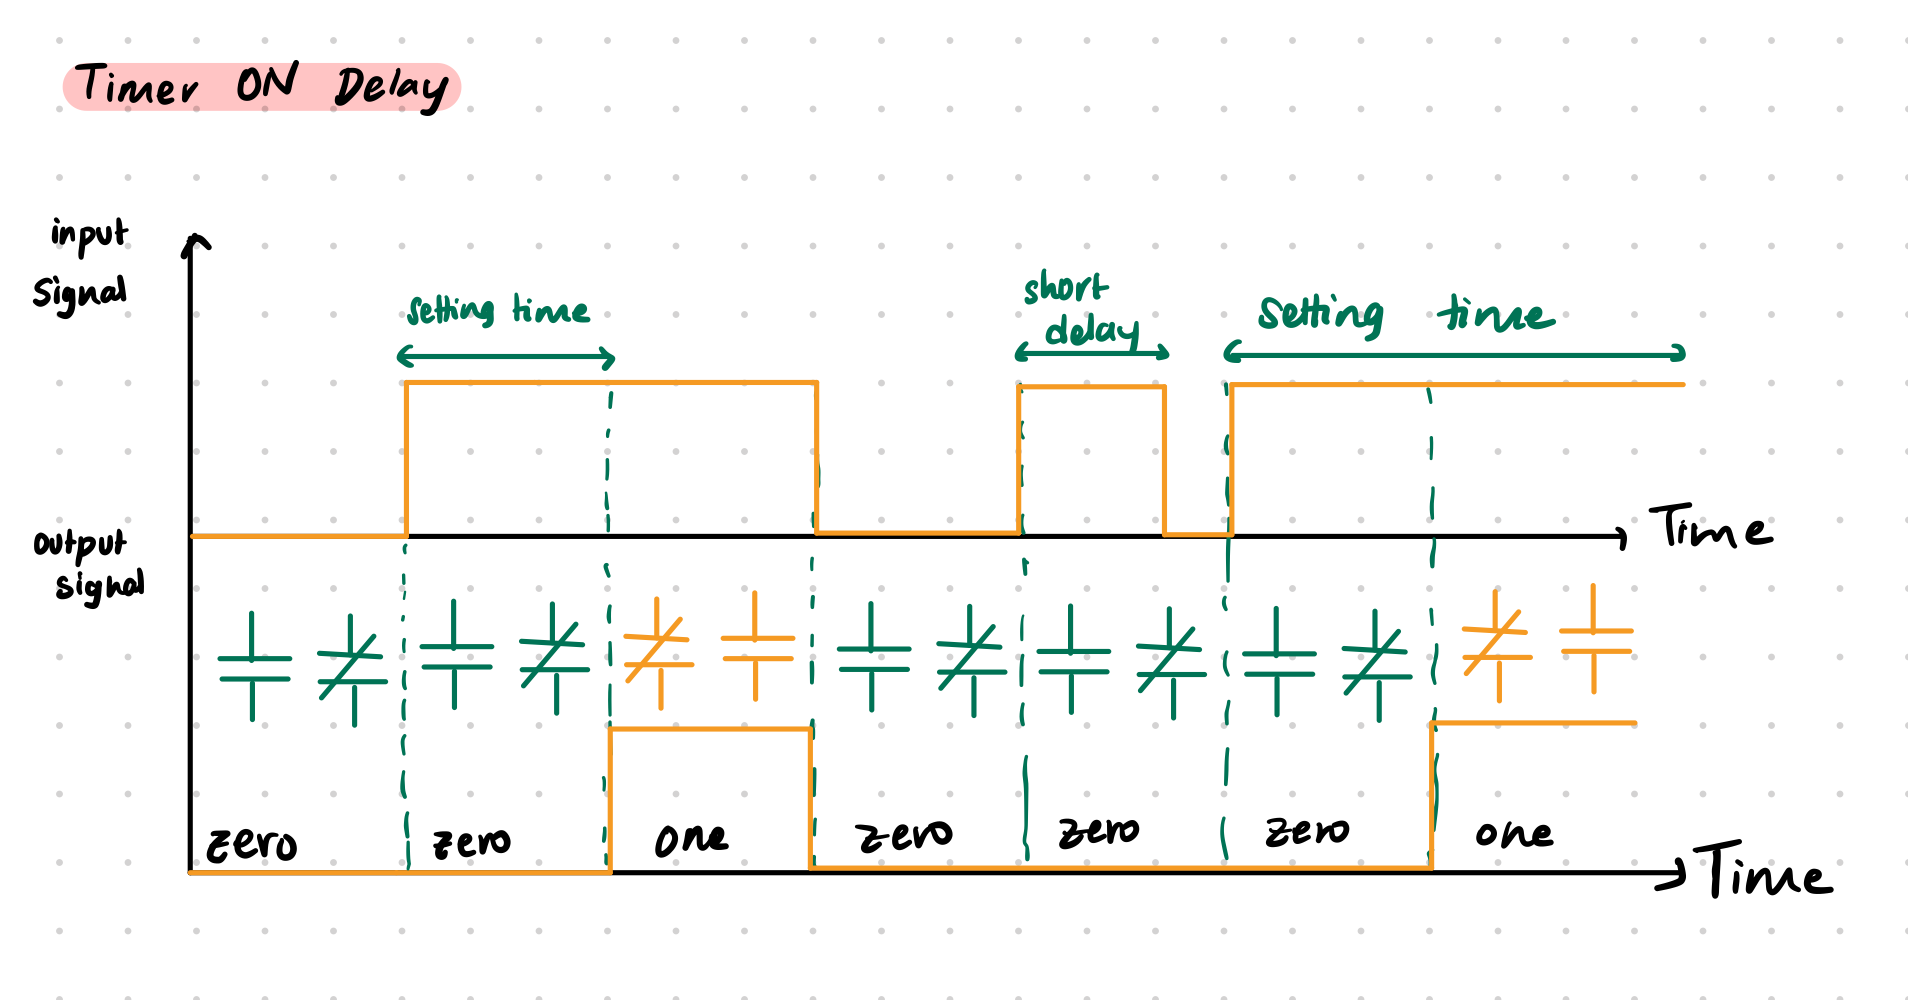 Timer ON Delay
input
Signal
setting time
short
delay
Setting time
Time
Output
signal
zero zero one zero zero zero one
Time